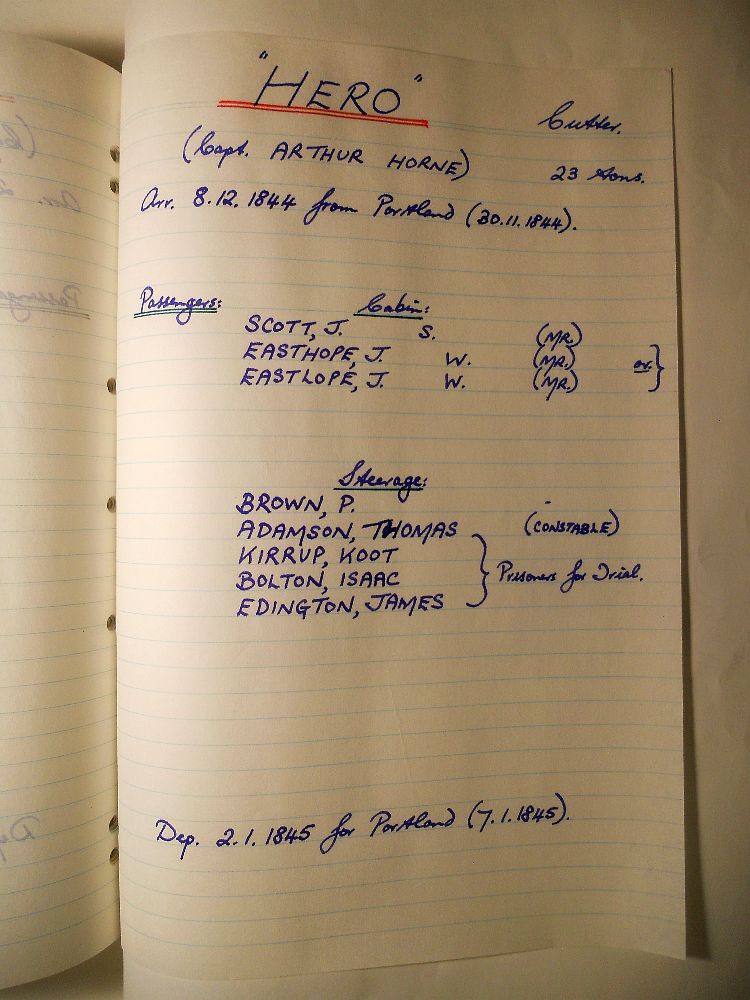 "HERO"
Cutter.
(Capt. ARTHUR HORNE)
23 tons.
Arr. 8.12.1844 from Portland (30.11.1844).
Passengers:
Cabin:
SCOTT, J. S. (MR.)
EASTHOPE, J. W. (MR.)
EASTLOPE, J. W. (MR.) or }
Steerage:
BROWN, P. -
ADAMSON, THOMAS (CONSTABLE)
KIRRUP, KOOT
BOLTON, ISAAC } Prisoners for Trial.
EDINGTON, JAMES
Dep. 2.1.1845 for Portland (7.1.1845).